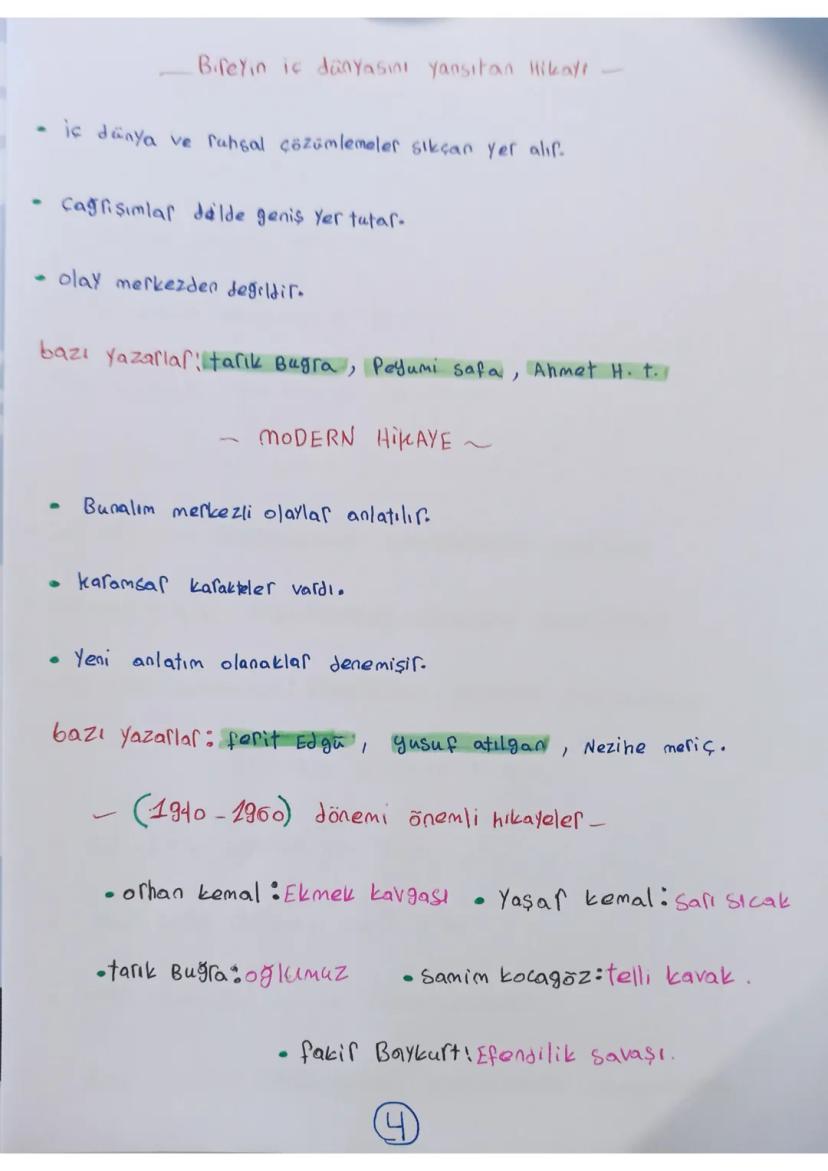 — Bireyin iç dünyasını yansıtan Hikaye —
• iç dünya ve ruhsal çözümlemeler sıkçan yer alır.
• Çağrışımlar dilde geniş yer tutar.
• olay merkezden değildir.
bazı yazarlar: tarık Bugra, Peyami safa, Ahmet H. t.
~ MODERN HİKAYE ~
• Bunalım merkezli olaylar anlatılır.
• karamsar karakteler vardı.
• Yeni anlatım olanaklar denemişir.
bazı yazarlar: ferit Edgü, yusuf atılgan, Nezihe meriç.
— (1940 - 1960) dönemi önemli hıkayeler —
• orhan kemal: Ekmek kavgası • Yaşar kemal: sarı sıcak
• tarık Buğra: oğlumuz • samim kocagöz: telli kavak.
• fakir Baykurt: Efendilik savaşı.
4